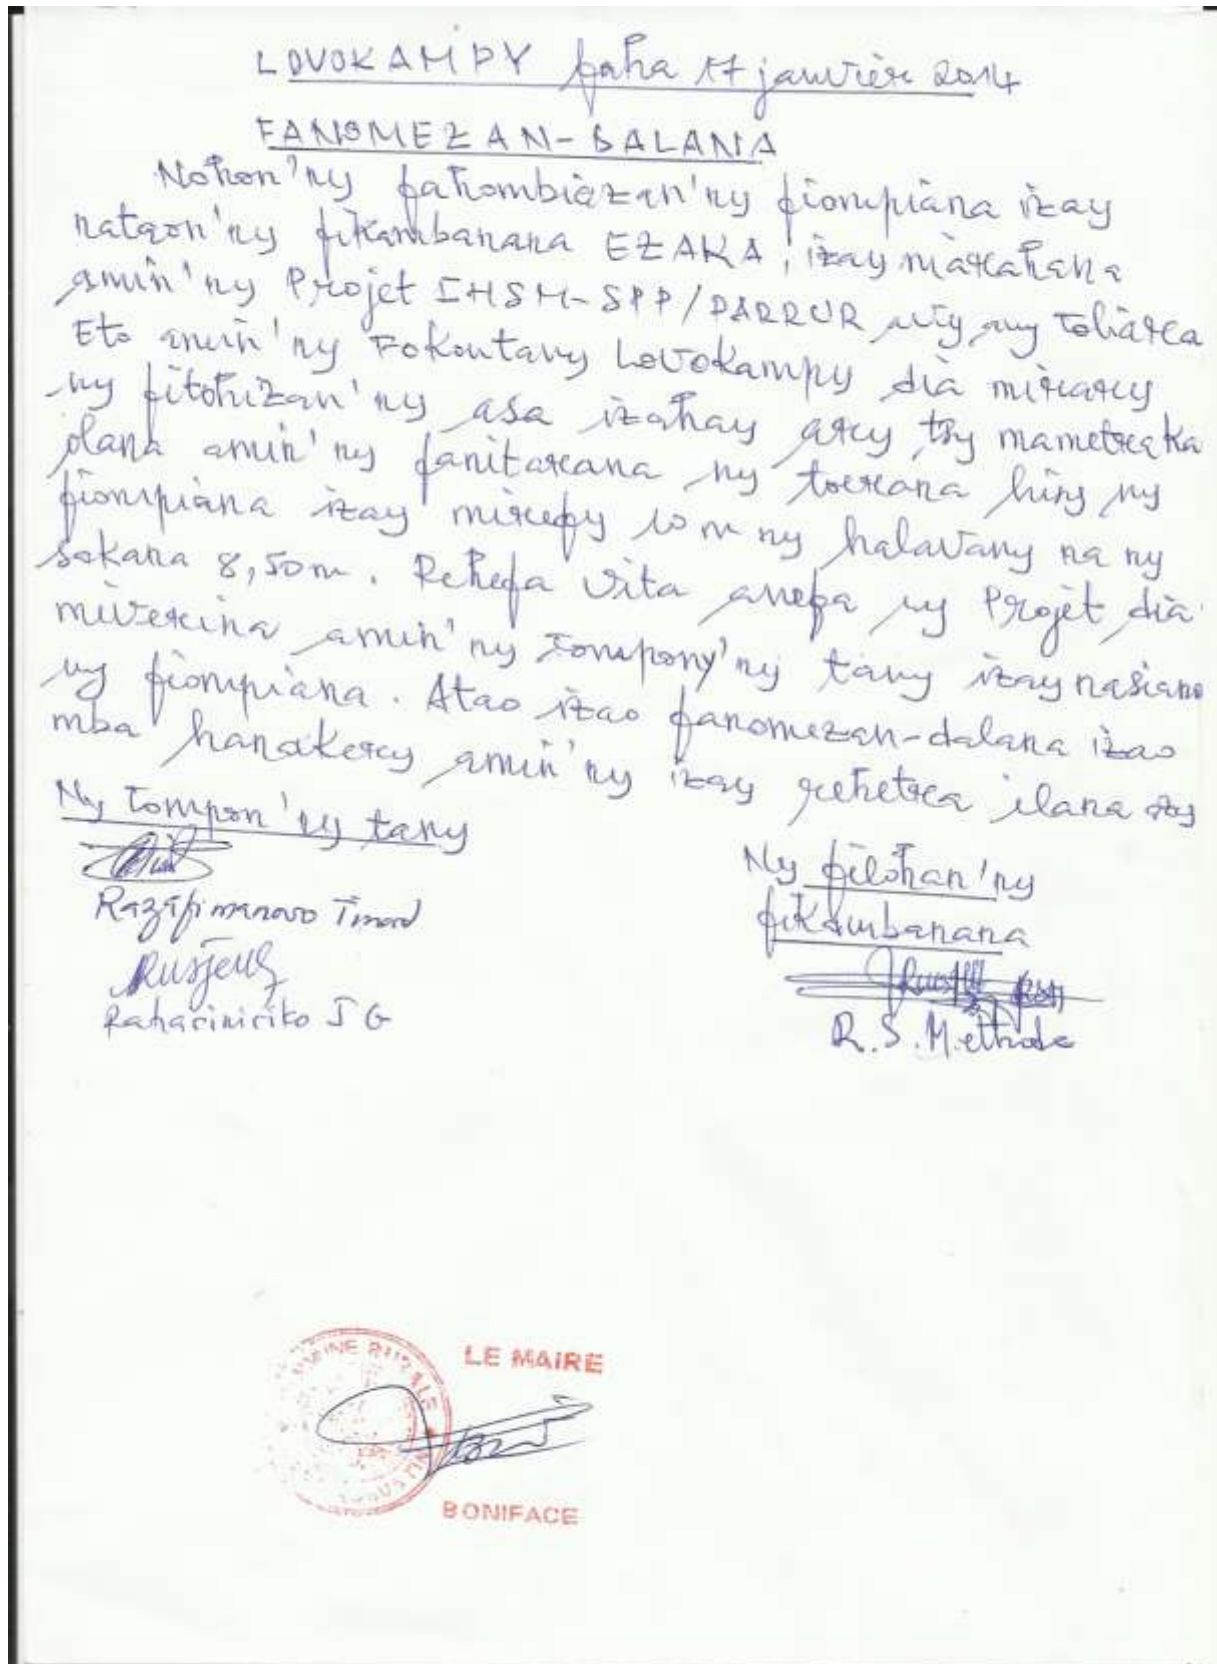 LOVOKAMPY faha 17 janvièr 2014
FANOMEZAN-DALANA
Nohon'ny fahombiazan'ny fiompiana izay
nataon'ny fikambanana EZAKA, izay miaraka
amin'ny Projet IHSM-SPP/PARRUR avy any Toliara
Eto amin'ny Fokontany Lovokampy dia miraray
ny fitohizan'ny asa izahay ary tsy mametraka
olana amin'ny fanitarana ny toerana hisy ny
fiompiana izay mirefy 10 m ny halavany na ny
sakana 8,50m. Rehefa vita anefa ny Projet dia
miverina amin'ny tompony'ny tany izay nasiana
ny fiompiana. Atao izao fanomezan-dalana izao
mba hanakery amin'ny izay rehetra ilana azy
Ny Tompon'ny tany
Razafimanavo Timond
Raharinirito J G
Ny filohan'ny
fikambanana
R.S. Methode
RURALE
LE MAIRE
BONIFACE